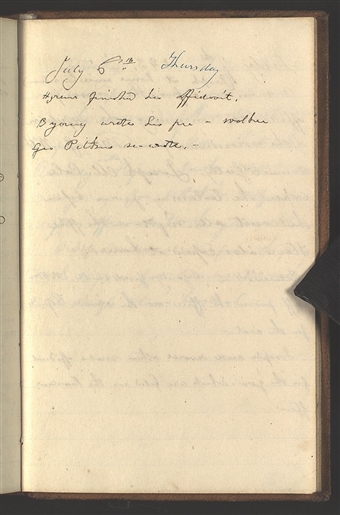 July 6th Thursday
Hyrum finished his affidavit.
B young wrote his pre -
Geo Pitkin rewrote. -